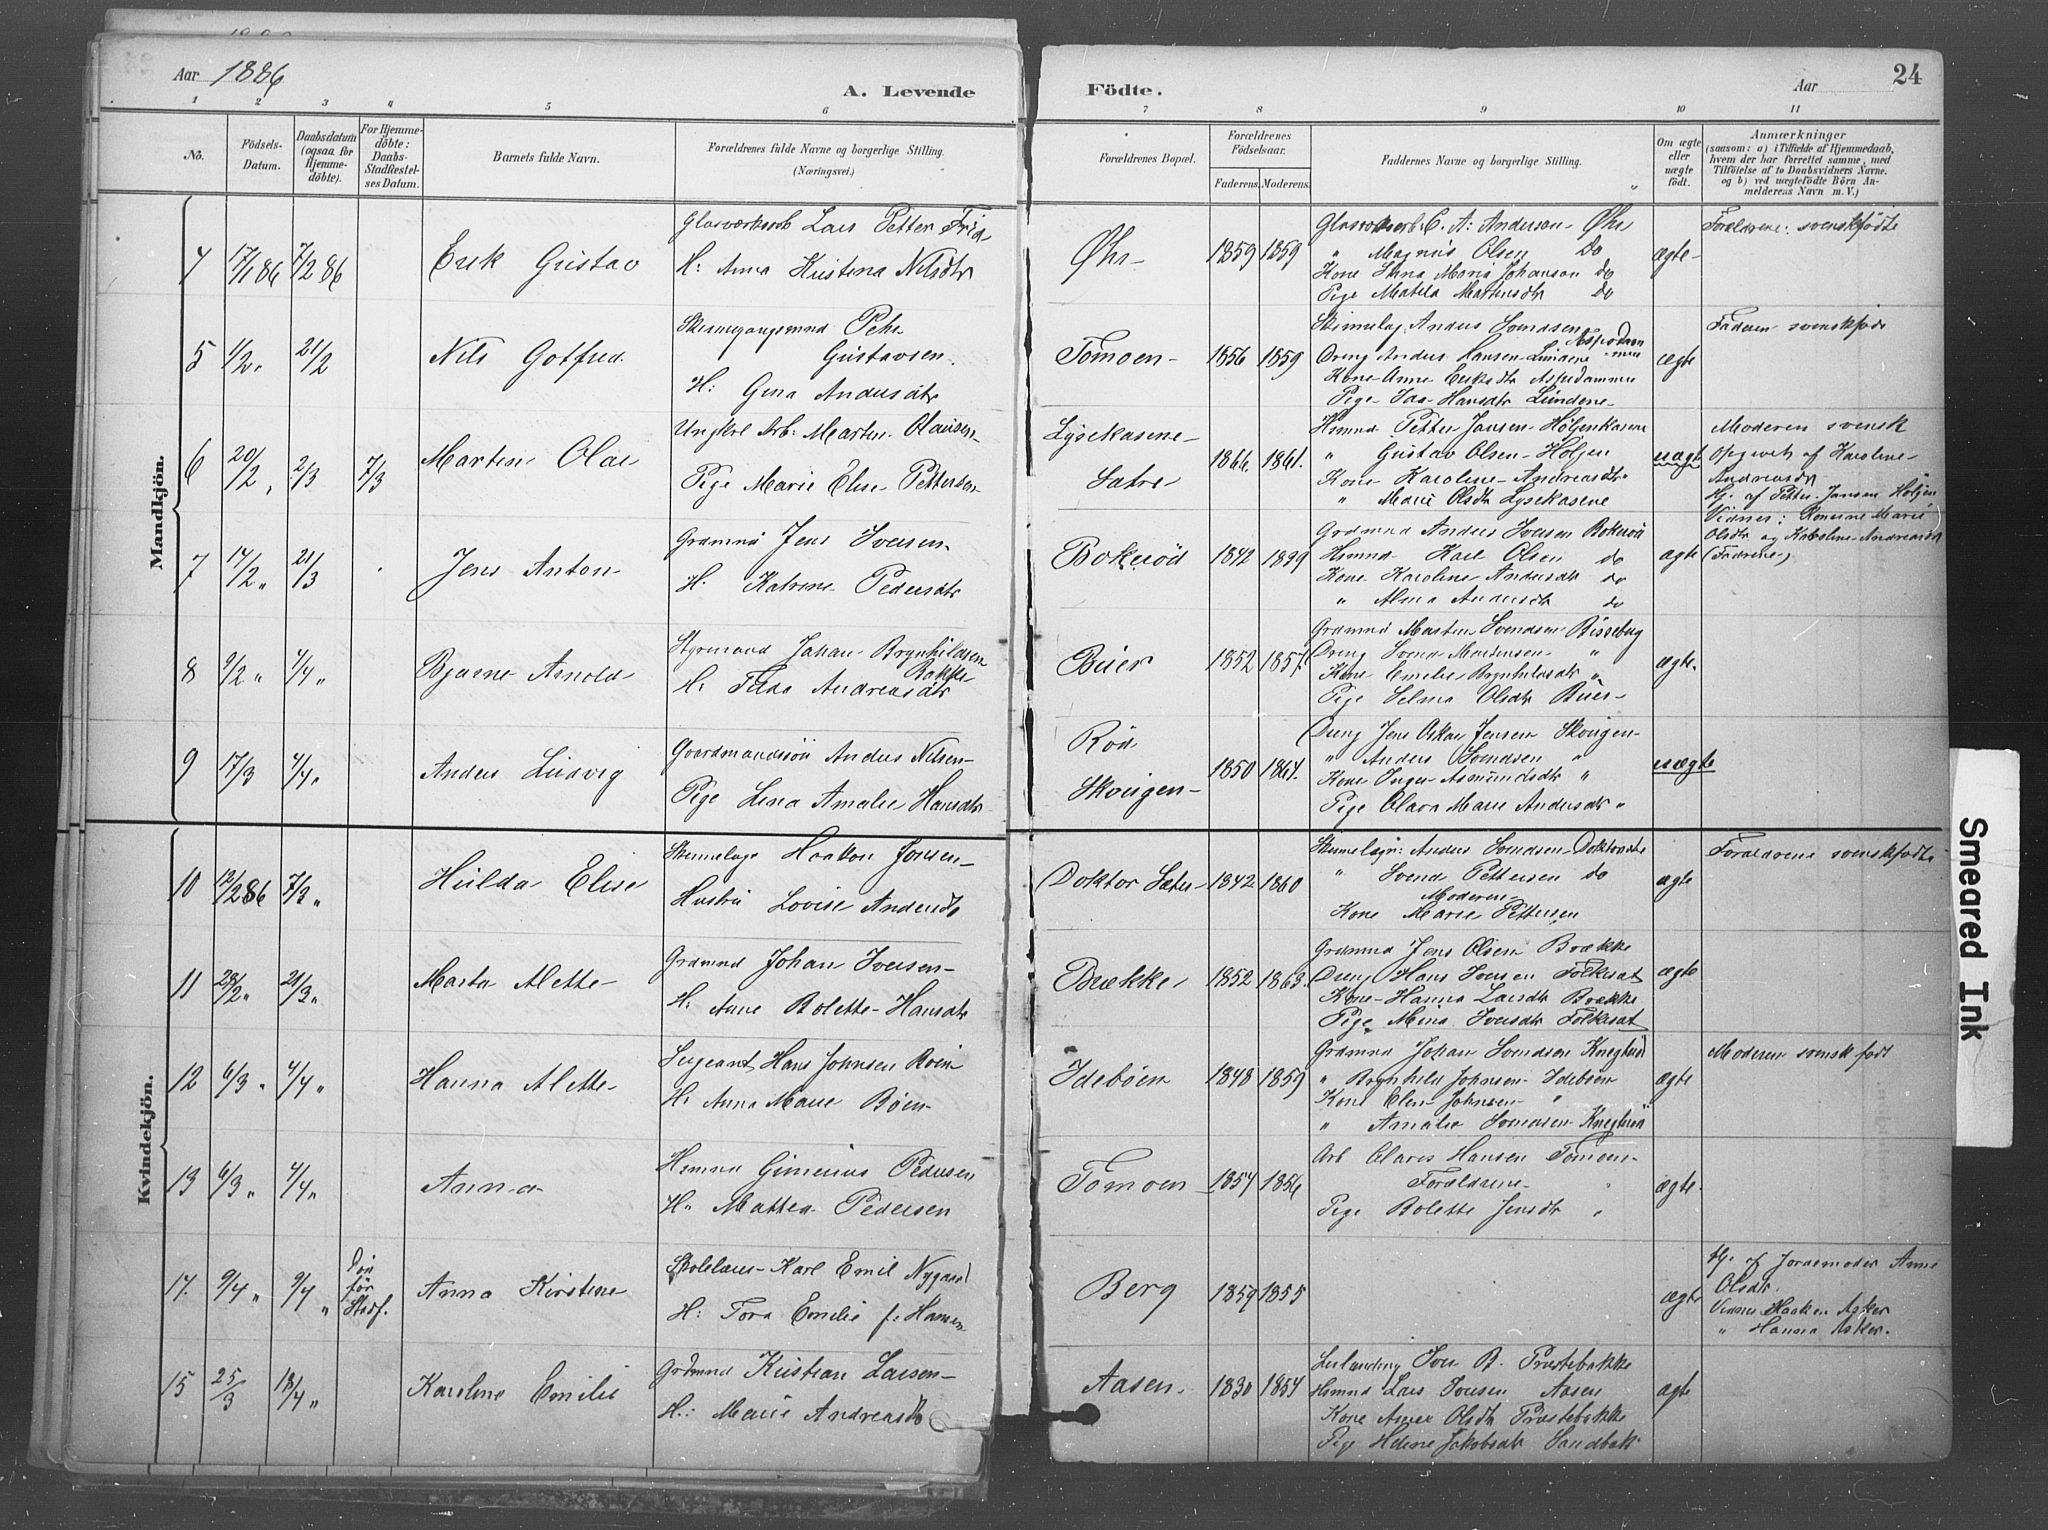 Aar 1886
A. Levende Födte.
Aar
24
1 2 3 4 5 6 7 8 9 10 11
No.
Födsels-Datum.
Daabsdatum (ogsaa for Hjemmedöbte).
For Hjemmedöbte: Daabs-Stadfæstelses Datum.
Barnets fulde Navn.
Forældrenes fulde Navne og borgerlige Stilling. (Næringsvei.)
Forældrenes Bopæl.
Forældrenes Födselsaar.
Faderens. Moderens.
Faddernes Navne og borgerlige Stilling.
Om ægte eller uægte födt.
Anmærkninger
(saasom: a) i Tilfælde af Hjemmedaab, hvem der har forrettet samme, med Tilföielse af to Daabsvidners Navne. og b) ved uægtefödte Börn Anmelderens Navn m. V.)
Mandkjön.
4 17/1 86 7/2 86 Erik Gustav
Glasværksarb Lars Petter Frid
H: Anna Kristina Nilsdtr
Øhr 1859 1859
Glasværksarb. C. A. Anderson Øhr
" Magnus Olsen Do
Kone Stina Maria Johanson do
Pige Matila Martinsdtr do
ægte
Forældrene svenskfödte
5 4/2 " 21/2 Nils Gotfred
Pehr
Gustavsen
H: Gina Andersdtr
Tomoen 1856 1859
Anders Svendsen
Dreng Anders Hansen Lundene
Kone Anne Eriksdtr Aspedammen
Pige Ida Hansdtr Lundene
ægte
Faderen svenskföd
6 20/2 " 2/3 7/3 Martin Olai
Ungkrl Arb: Martin Olausen
Pige Marie Elise Pettersen
Lysekasene
Sætre 1866 1861.
Hsmnd Petter Jansen Höljenkasene
" Gustav Olsen Höljen
Kone Karoline Andreasdtr
" Marie Olsdtr Lysekasene
uægte
Moderen svensk
Opgivet af Karoline
Andreasdtr
Hj. af Petter Jansen Höljen
Vidner: Konerne Marie
Olsdtr og Karoline Andreasdtr
(Fadrene)
7 14/2 " 21/3 Jens Anton
Grdmnd Jens Iversen
H. Katrine Pedersdtr
Bokeröd 1842 1839
Grdmnd Anders Iversen Bokeröd
Hsmnd Karl Olsen do
Kone Karoline Andersdtr do
" Alma Andersdtr do
ægte
8 9/2 " 4/4 " Bjarne Arnold
Styrmand Johan Brynhildsen
Bakke
H: Tilda Andreasdtr
Buer 1852 1857.
Grdmnd Martin Svendsen Bisseberg
Dreng Svend Martinsen "
Kone Emilie Brynhildsdtr "
Pige Selma Olsdtr Buer
ægte.
9 17/3 4/4 " Anders Ludvig
Gaardmandssön Anders Nilsen
Pige Lina Amalie Hansdtr
Röd
Skovigen 1850 1864.
Dreng Jens Oskar Jensen Skovigen
" Anders Svendsen "
Kone Inger Asmundsdtr "
Pige Olava Marie Andersdtr "
uægte
Kvindekjön.
10 12/2 86 7/3 " Hulda Elise
Haakon Jonsen
Hustru Lovise Andersdtr
Doktor Sæter 1842 1860
Anders Svendsen
" Svend Pettersen do
Moderen
Kone Marie Pettersen
ægte
Forældrene svenskfödte
11 28/2 " 21/3 " Marta Alette
Grdmnd Johan Iversen
H: Anne Bolette Hansdtr
Brække 1852 1863.
Grdmnd Jens Olsen Brække
Dreng Hans Iversen Folkesat
Kone Hanna Larsdtr Brække
Pige Mina Iversdtr Folkesat
ægte
12 6/3 " 4/4 " Hanna Alette
Sergeant Hans Johnsen Böen
H. Anna Marie Böen
Ideböen 1848 1859
Grdmnd Johan Svendsen
" Brynhild Johnsen Ideböen
Kone Elen Johnsen "
" Amalie Svendsen
ægte
Moderen svenskfödt
13 6/3 " 4/4 " Anna
Hsmnd Gunerius Pedersen
H. Mattea Pedersen
Tomoen 1854 1856
Arb Olaves Hansen Tomoen
Forældrene "
Pige Bolette Jensdtr "
ægte.
14. 9/4 " 9/4 " Död för Stadf.
Anna Kirstine
Skolelærer Karl Emil Nygaard
H: Tora Emilie f. Hansen
Berg 1859 1855
ægte
Hj. af Jordemoder Anne
Olsdtr.
Vidner Haaken Asker
" Hanna Asker.
15 25/3 18/4 " Karoline Emilie
Grdmnd Kristian Larsen
H.: Marie Andreasdtr
Aasen 1830 1854
Iver B. Præstebakke
Hsmnd Lars Iversen Aasen
Kone Anne Olsdtr Præstebakke
Pige Helene Jakobsdtr Sandbæk
ægte
Smeared Ink